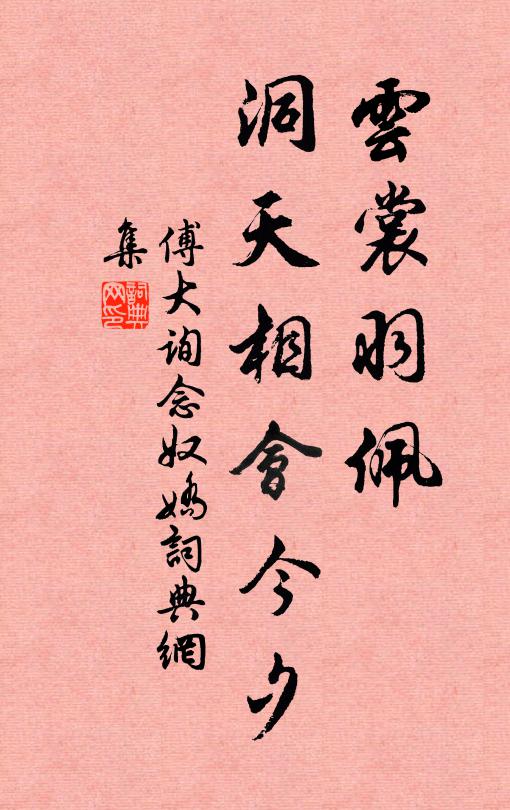 雲裳羽佩
洞天相會今夕
傅大詢念奴嬌詞典網
集
詞典網印